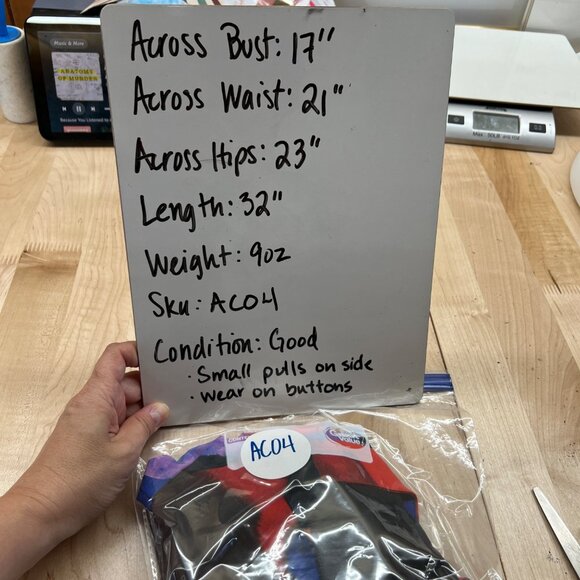 Music & More
ANATOMY
OF MURDER
Because You Listened to
Across Bust: 17"
Across Waist: 21"
Across Hips: 23"
Length: 32"
Weight: 9oz
Sku: AC04
Condition: Good
· Small pulls on side
· Wear on buttons
Great Value
AC04